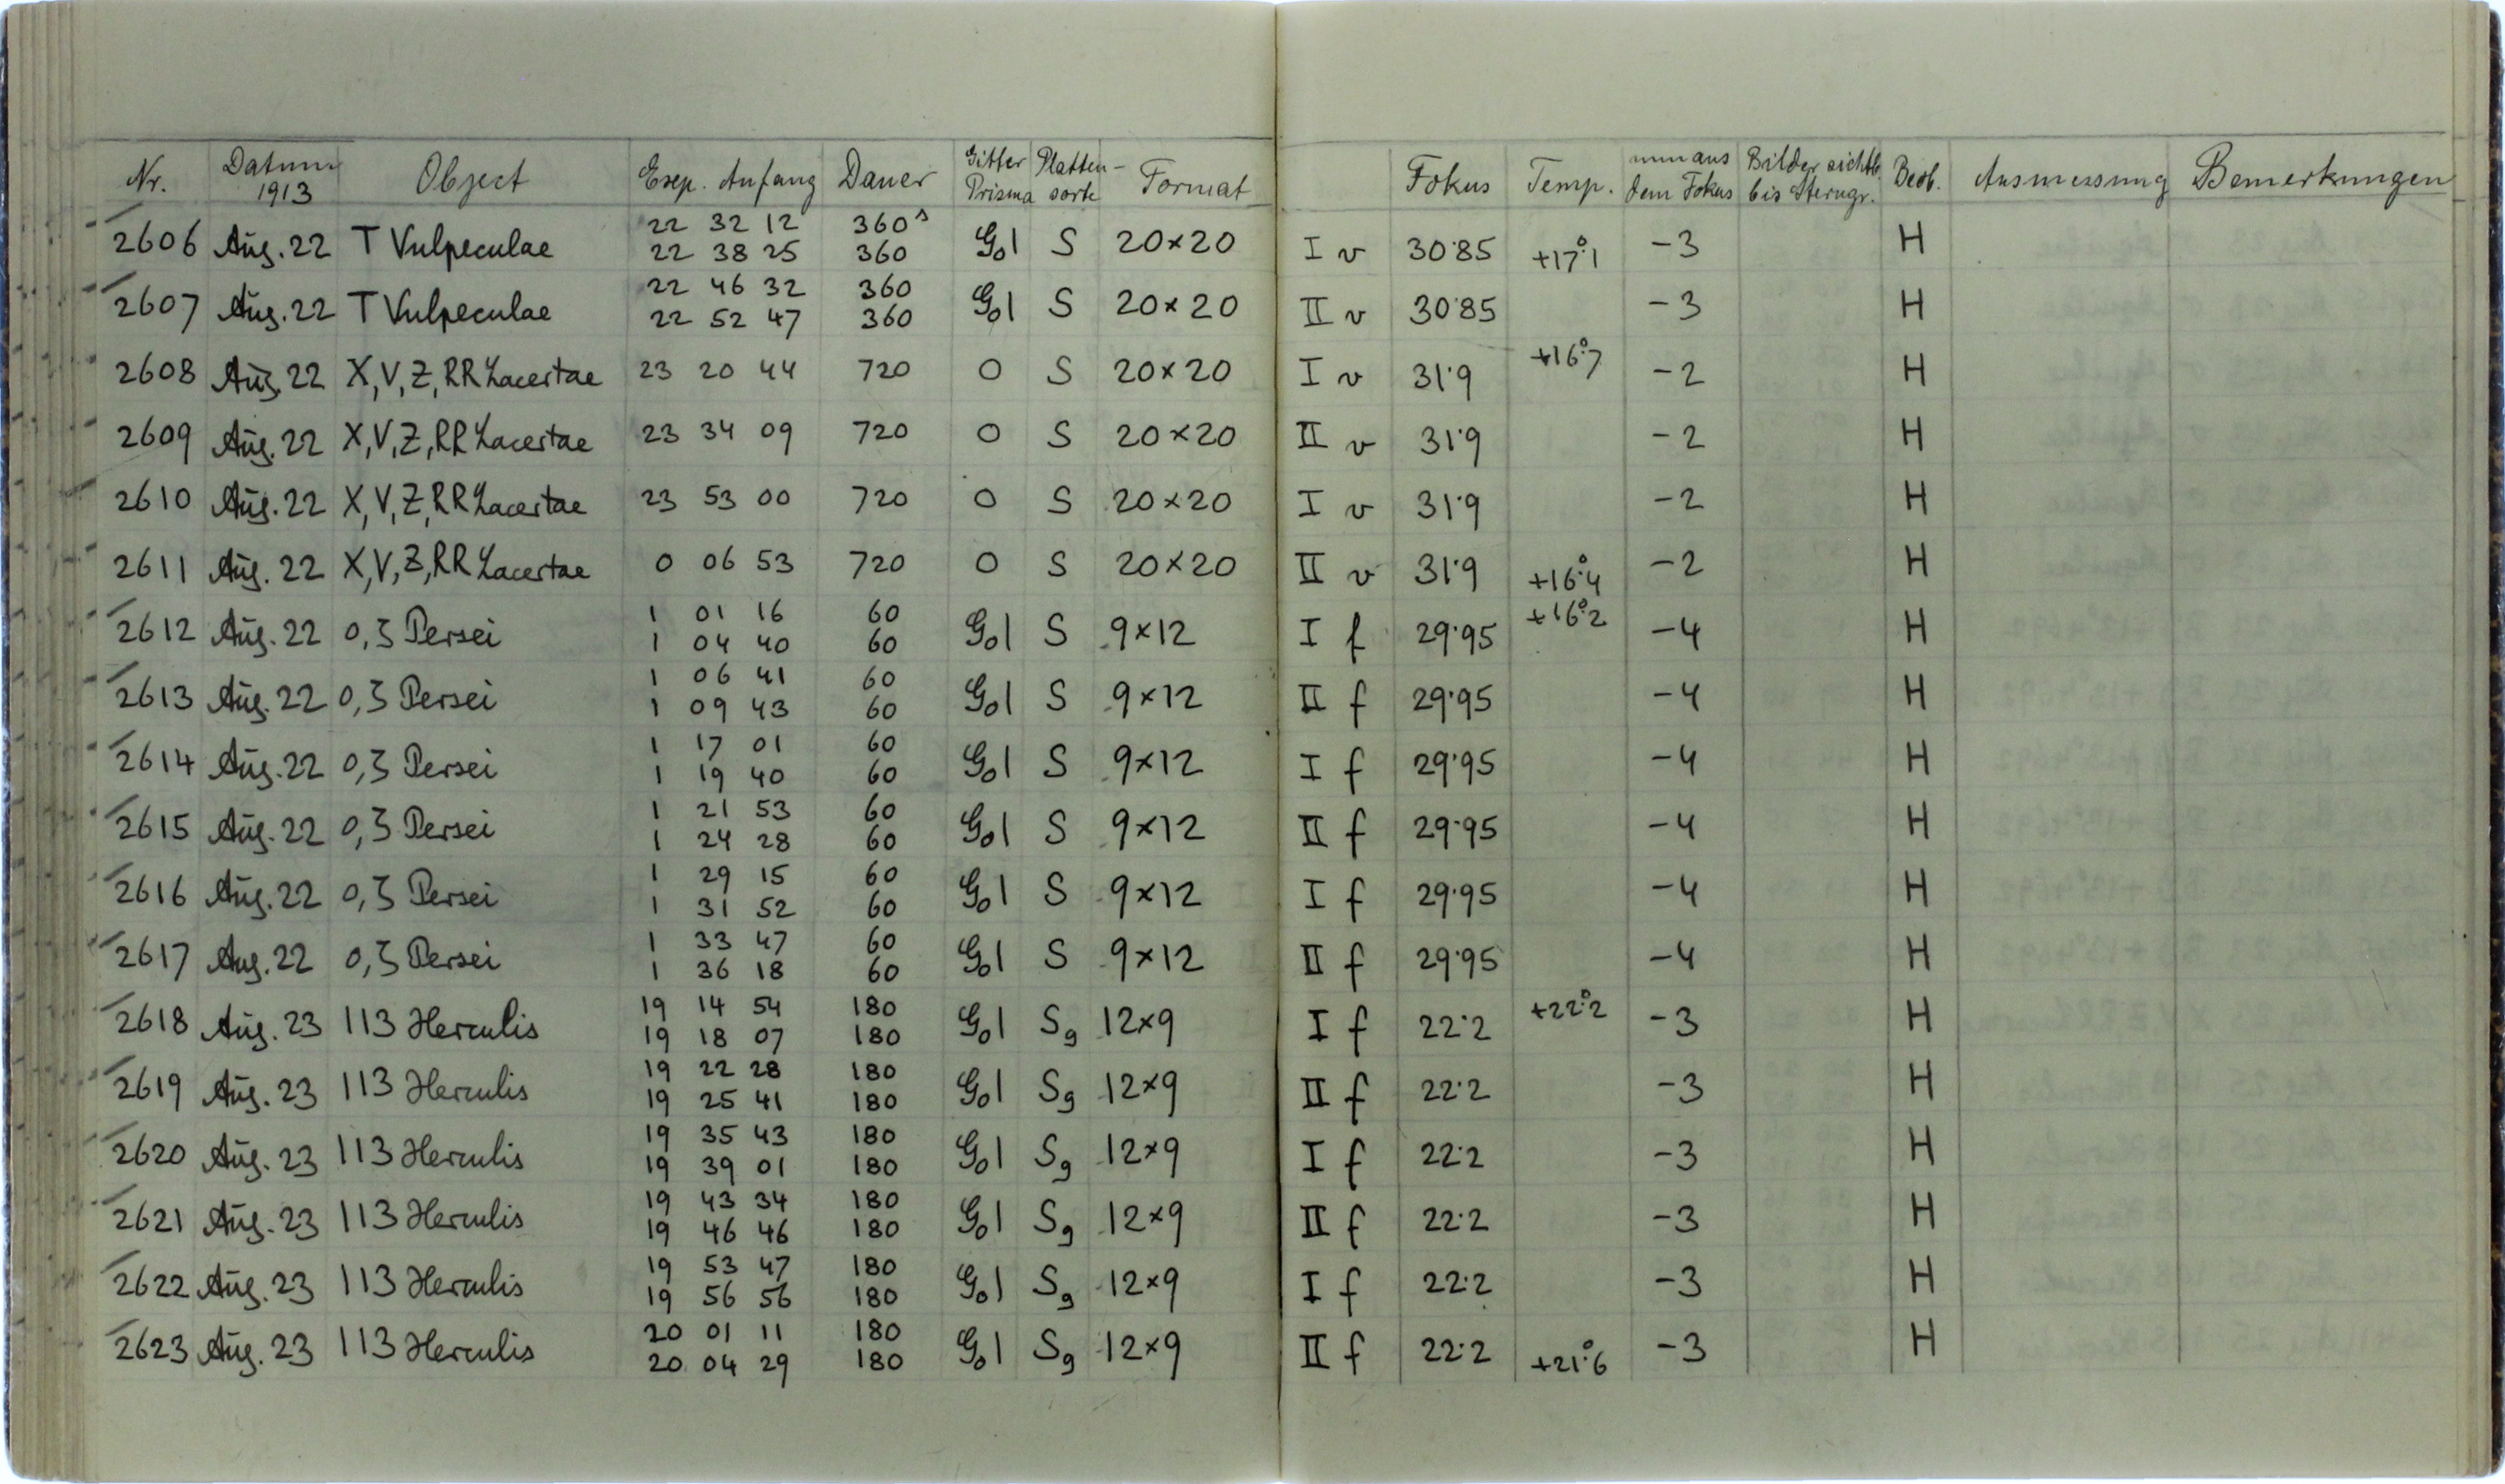 Nr. Datum 1913 Object Exp. Anfang Dauer Gitter Prisma Platten-sorte Format Fokus Temp. mm aus dem Fokus Bilder sichtb. bis Sterngr. Beob. Ausmessung Bemerkungen
2606 Aug. 22 T Vulpeculae 22 32 12 360s G0| S 20×20 I v 30·85 +17°.1 -3 H
22 38 25 360
2607 Aug. 22 T Vulpeculae 22 46 32 360 G0| S 20×20 II v 30·85 -3 H
22 52 47 360
2608 Aug. 22 X, V, Z, RR Lacertae 23 20 44 720 0 S 20×20 I v 31·9 +16°.7 -2 H
2609 Aug. 22 X, V, Z, RR Lacertae 23 34 09 720 0 S 20×20 II v 31·9 -2 H
2610 Aug. 22 X, V, Z, RR Lacertae 23 53 00 720 0 S 20×20 I v 31·9 -2 H
2611 Aug. 22 X, V, Z, RR Lacertae 0 06 53 720 0 S 20×20 II v 31·9 +16°.4 -2 H
2612 Aug. 22 o, ζ Persei 1 01 16 60 G0| S 9×12 I f 29·95 +16°.2 -4 H
1 04 40 60
2613 Aug. 22 o, ζ Persei 1 06 41 60 G0| S 9×12 II f 29·95 -4 H
1 09 43 60
2614 Aug. 22 o, ζ Persei 1 17 01 60 G0| S 9×12 I f 29·95 -4 H
1 19 40 60
2615 Aug. 22 o, ζ Persei 1 21 53 60 G0| S 9×12 II f 29·95 -4 H
1 24 28 60
2616 Aug. 22 o, ζ Persei 1 29 15 60 G0| S 9×12 I f 29·95 -4 H
1 31 52 60
2617 Aug. 22 o, ζ Persei 1 33 47 60 G0| S 9×12 II f 29·95 -4 H
1 36 18 60
2618 Aug. 23 113 Herculis 19 14 54 180 G0| Sg 12×9 I f 22·2 +22°.2 -3 H
19 18 07 180
2619 Aug. 23 113 Herculis 19 22 28 180 G0| Sg 12×9 II f 22·2 -3 H
19 25 41 180
2620 Aug. 23 113 Herculis 19 35 43 180 G0| Sg 12×9 I f 22·2 -3 H
19 39 01 180
2621 Aug. 23 113 Herculis 19 43 34 180 G0| Sg 12×9 II f 22·2 -3 H
19 46 46 180
2622 Aug. 23 113 Herculis 19 53 47 180 G0| Sg 12×9 I f 22·2 -3 H
19 56 56 180
2623 Aug. 23 113 Herculis 20 01 11 180 G0| Sg 12×9 II f 22·2 +21°.6 -3 H
20 04 29 180